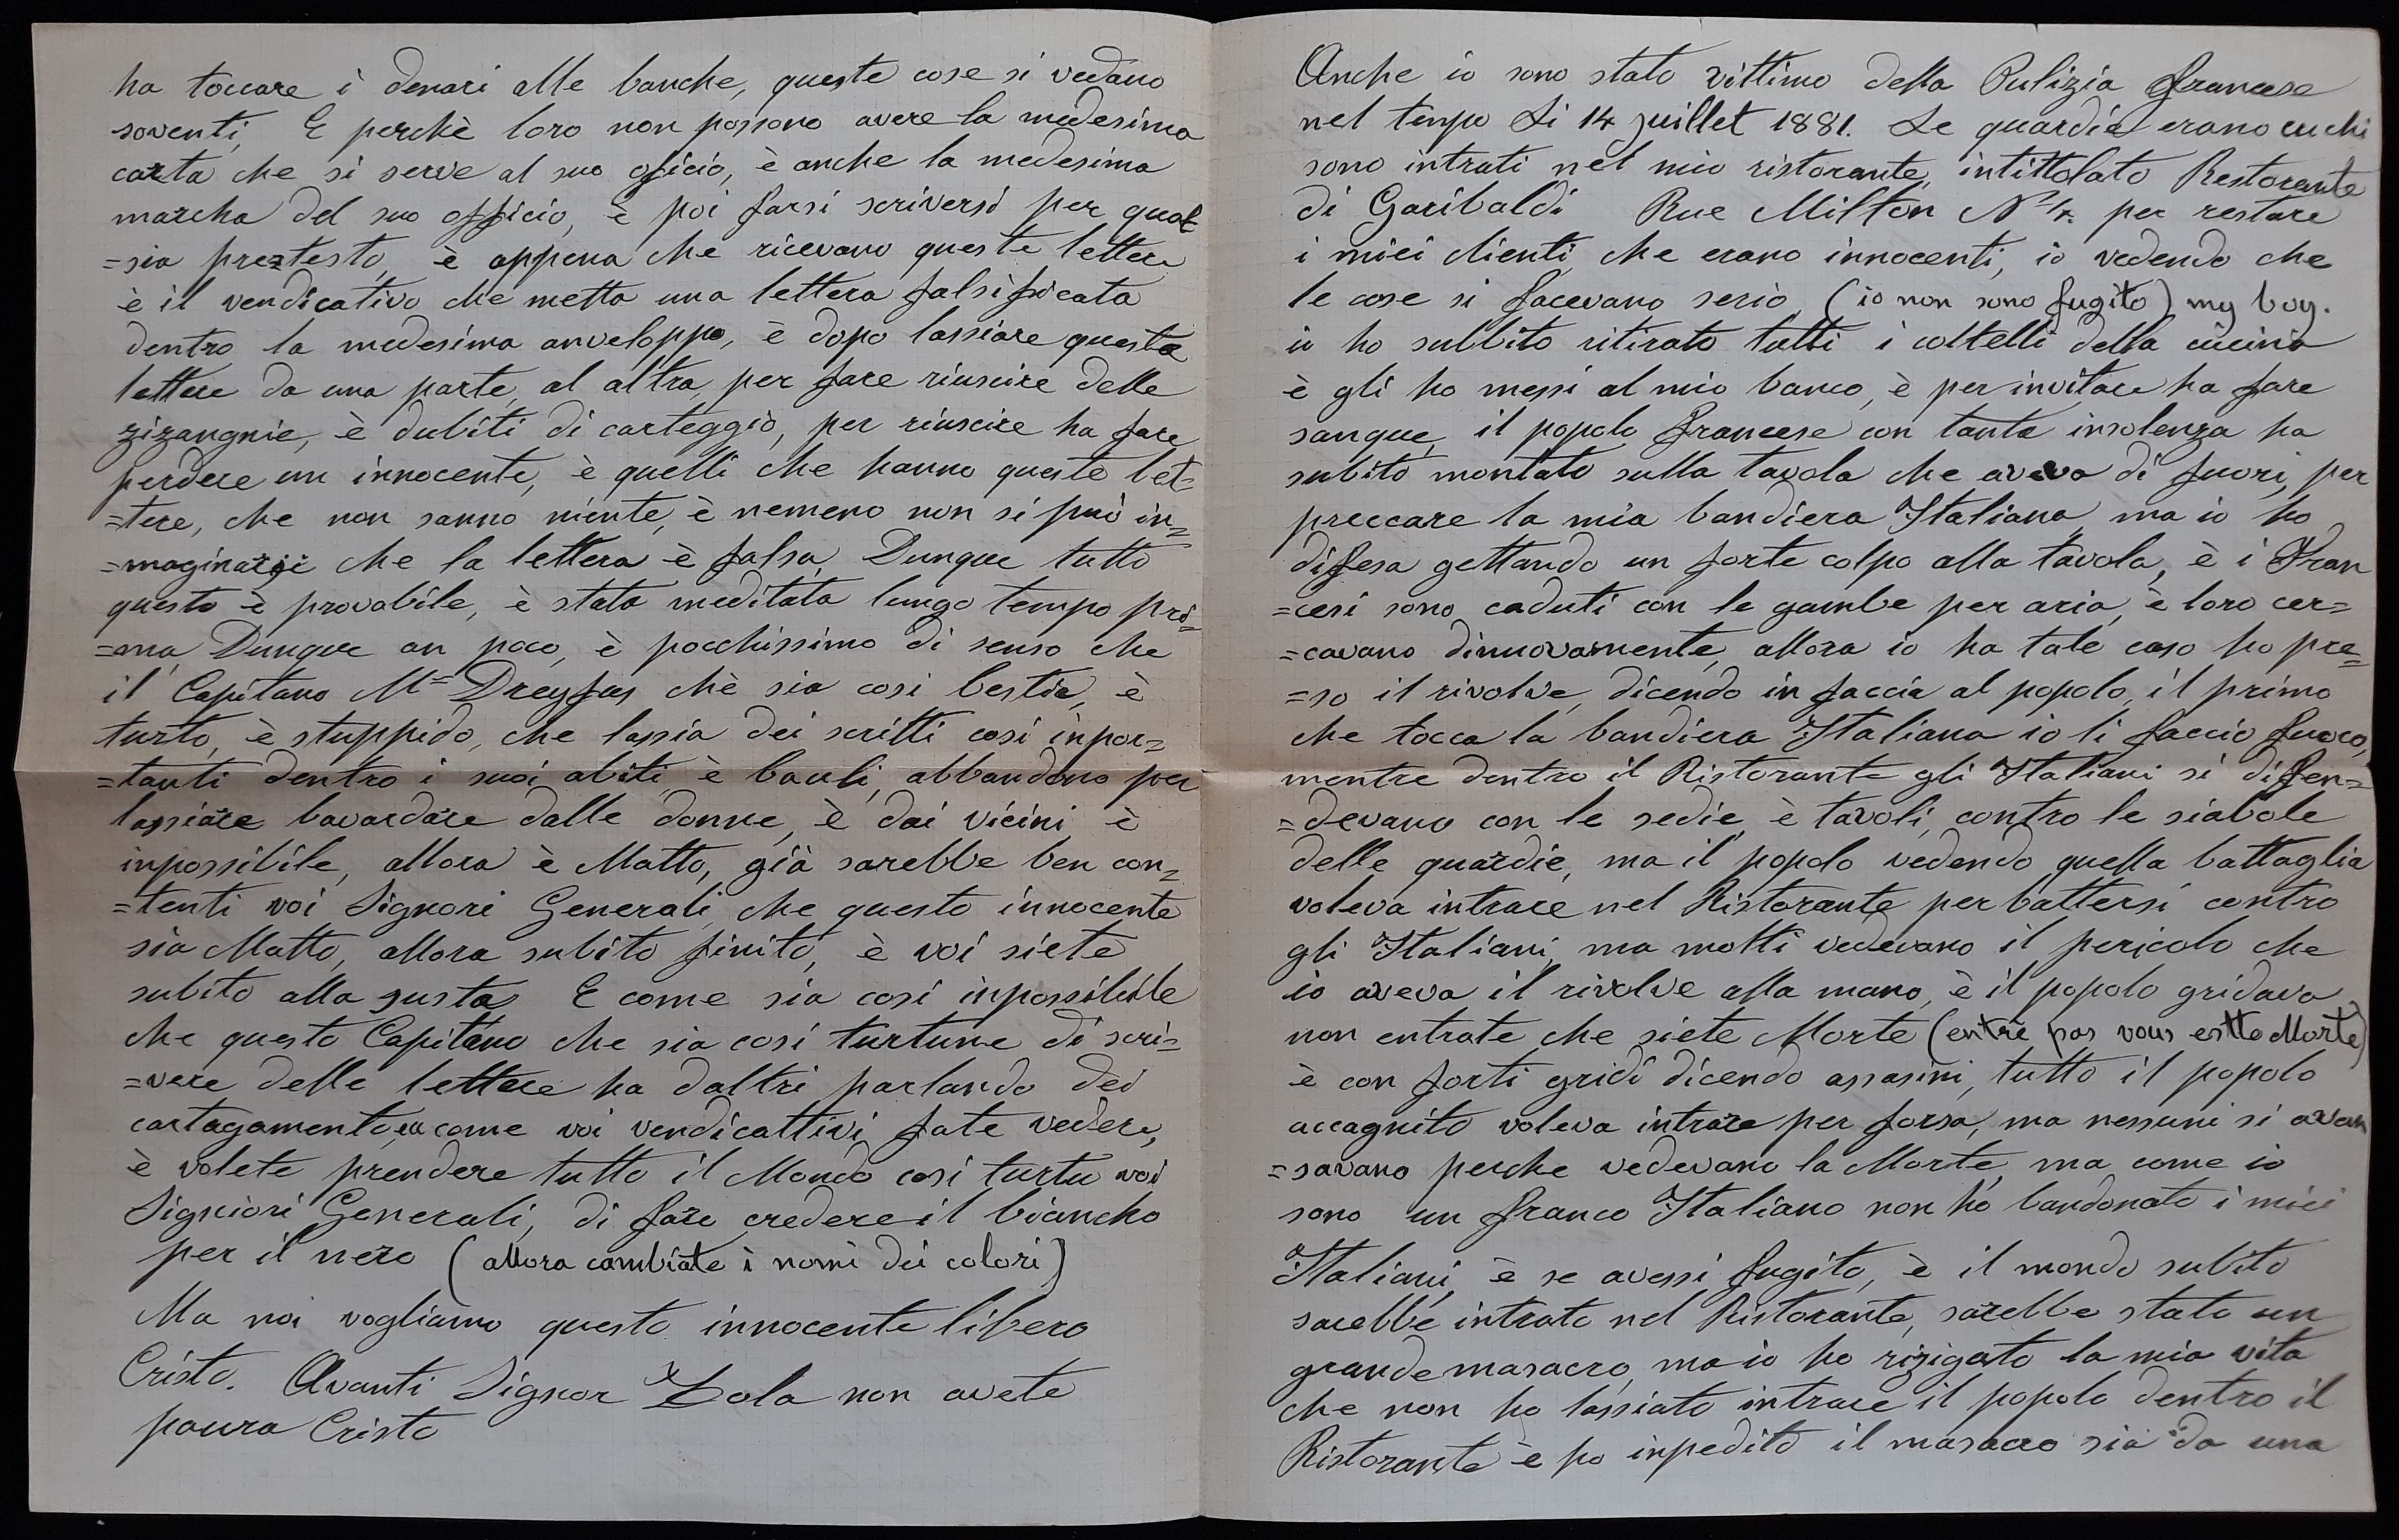 ha toccare i denari alle banche, queste cose si vedano
soventi, E perchè loro non possono avere la medesima
carta che si serve al suo oficio, è anche la medesima
marcha del suo officio, è poi farsi scriversi per qual
=sia preztesto, è appena che ricevano queste lettere
è il vendicativo che metta una lettera falsificata
dentro la medesima anveloppa, è dopo lassiare questa
lettere da una parte, al altra, per fare riuscire delle
zizangnie, è dubiti di carteggio, per riuscire ha fare
perdere un innocente, è quelli che hanno queste let=
=tere, che non sanno niente, è nemeno non si può in=
=maginarsi che la lettera è falsa, Dunque tutto
questo è provabile, è stata meditata lungo tempo pri=
=ma, Dunque un poco, è pocchissimo di senso che
il Capitano M= Dreyfus chè sia cosi bestia, è
turto, è stuppido, che lassia dei scritti cosi inpor=
=tanti dentro i suoi abiti, è bauli, abbandono per
lassiare bavardare dalle donne, è dai vicini, è
inpossibile, allora è Matto, già sarebbe ben con=
=tenti voi Signori Generali, che questo innocente
sia Matto, allora subito finito, è voi siete
subito alla gusta, E come sia cosi inpossibile
che questo Capitano che sia cosi turtune di scri=
=vere delle lettere ha daltri parlando dei
cartagamento, come voi vendicattivi fate vedere,
è volete prendere tutto il Mondo cosi turtu voi
Signiori Generali, di fare credere il biancho
per il nero (allora cambiate i nomi dei colori)
Ma noi vogliamo questo innocente libero
Cristo. Avanti Signor Zola non avete
paura Cristo
Anche io sono stato vittimo della Pulizia francese
nel tempo Li 14 juillet 1881. Le guardie erano
sono intrati nel mio ristorante, intittolato Restorante
di Garibaldi Rue Milton per restare
i miei clienti, che erano innocenti, io vedendo che
le cose si facevano serio, (io non sono fugito) my boy.
io ho subbito ritirato tutti i coltelli della cucina
è gli ho messi al mio banco, è per invitare ha fare
sangue, il popolo francese con tanta insolenza ha
subito montato sulla tavola che aveva di fuori, per
preccare la mia bandiera Italiana, ma io ho
difesa gettando un forte colpo alla tavola, è i Fran
=cesi sono caduti con le gambe per aria, è loro cer=
=cavano dinuovamente, allora io ha tale caso ho pre=
=so il rivolve, dicendo in faccia al popolo, il primo
che tocca la bandiera Italiana io li faccio fuoco,
mentre dentro il Ristorante gli Italiani si difen=
=devano con le sedie, è tavoli, contro le siabole
delle guardie, ma il popolo vedendo quella battaglia
voleva intrare nel Ristorante per battersi contro
gli Italiani, ma molti vedevano il pericolo che
io aveva il rivolve alla mano, è il popolo gridava
non entrate che siete Morte (entrè pas vous estte Morte)
è con forti gridi dicendo assasini, tutto il popolo
accagnito voleva intrare per forsa, ma nessuni si avan
=savano perche vedevano la Morte, ma come io
sono un franco Italiano non ho bandonato i miei
Italiani, è se avessi fugito, è il mondo subito
sarebbe intrato nel Ristorante, sarebbe stato un
grande masacro, ma io ho rizigato la mia vita
che non ho lassiato intrare il popolo dentro il
Ristorante è ho inpedito il masacro sia da una